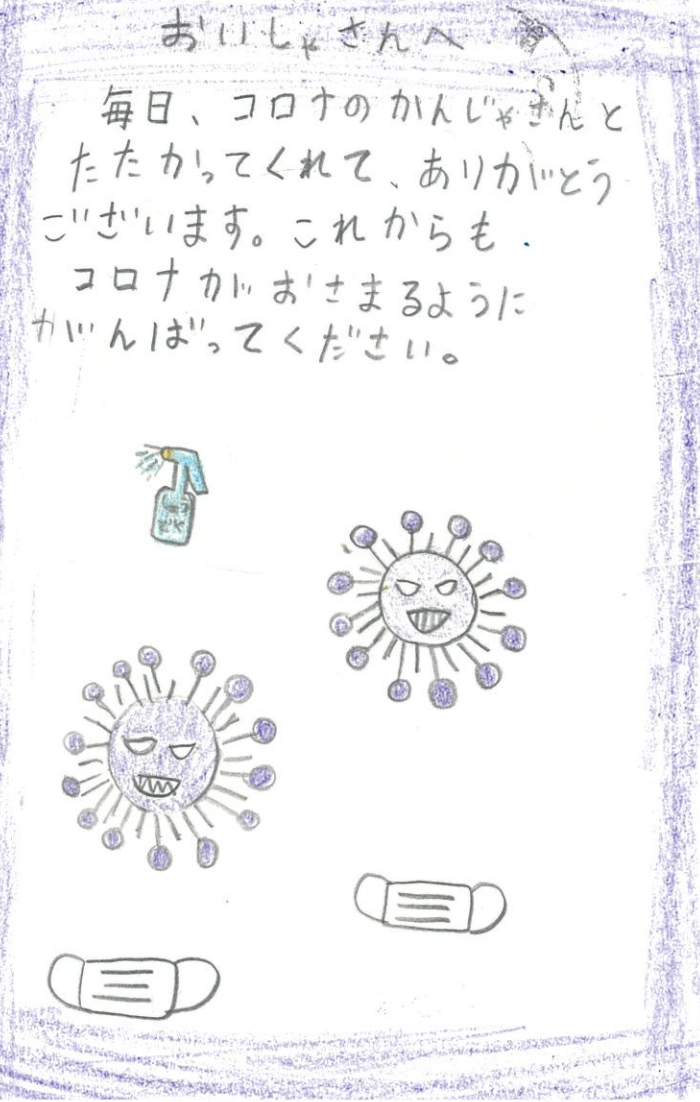 おいしゃさんへ
毎日、コロナのかんじゃさんと
たたかってくれて、ありがとう
ございます。これからも
コロナがおさまるように
がんばってください。